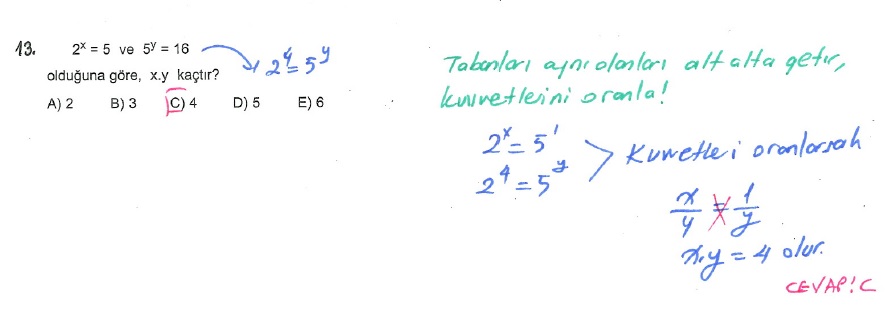 13. 2ˣ = 5 ve 5ʸ = 16
2⁴ = 5ʸ
olduğuna göre, x.y kaçtır?
A) 2 B) 3 C) 4 D) 5 E) 6
Tabanları aynı olanları alt alta getir,
kuvvetlerini oranla!
2ˣ = 5¹
2⁴ = 5ʸ
Kuvvetleri oranlarsak
x/4 = 1/y
x.y = 4 olur.
CEVAP: C